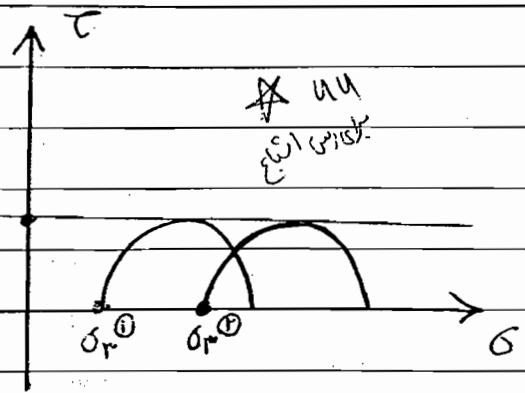 τ
☆ UU
برای رس اشباع
σ₃①
σ₃②
σ